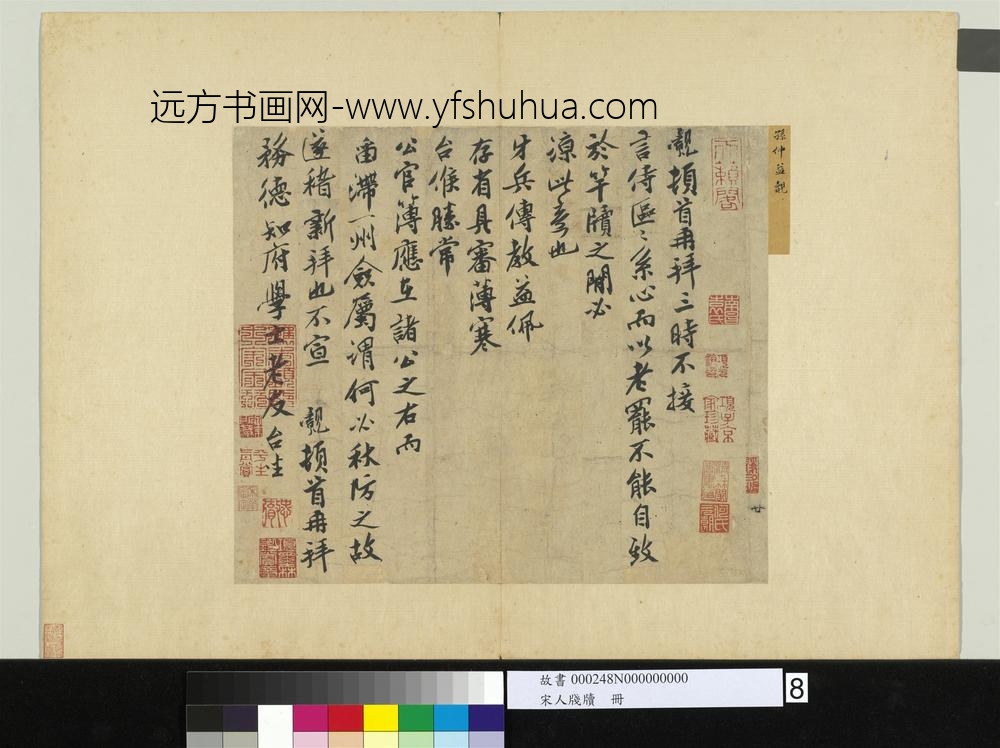 远方书画网-www.yfshuhua.com
孫仲益覿
覿頓首再拜三時不接
言侍區〻系心而以老罷不能自致
於竿牘之間必
涼此意也
牙兵傳教益佩
存省具審薄寒
台候勝常
公官簿應在諸公之右而
留滯一州僉屬謂何必秋防之故
遂稽新拜也不宣 覿頓首再拜
務德知府學士老友 台坐
天籟閣
項子京家珍藏
平生真賞
廿
故書 000248N000000000
宋人牋牘 冊
8